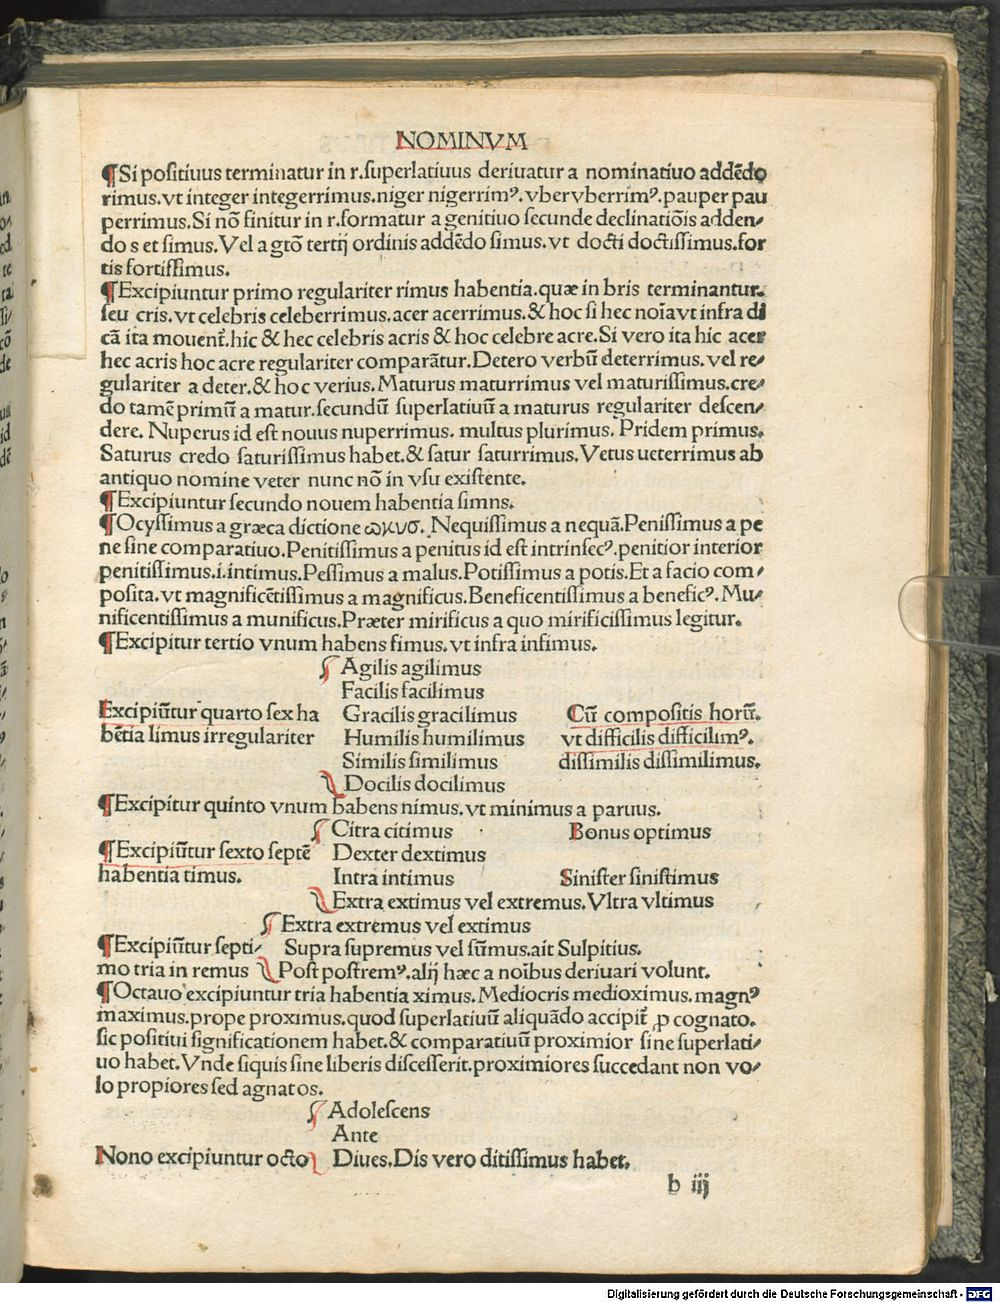 NOMINVM
¶Si positiuus terminatur in r.superlatiuus deriuatur a nominatiuo addēdo
rimus.vt integer integerrimus.niger nigerrimꝰ.vber vberrimꝰ.pauper pau
perrimus.Si nō finitur in r.formatur a genitiuo secunde declinatiōis adden⸗
do s et simus.Vel a gtō tertij ordinis addēdo simus.vt docti doctissimus.for
tis fortissimus.
¶Excipiuntur primo regulariter rimus habentia.quæ in bris terminantur.
seu cris.vt celebris celeberrimus.acer acerrimus.& hoc si hec noīa vt infra di
cā ita mouent̄.hic & hec celebris acris & hoc celebre acre.Si vero ita hic acer
hec acris hoc acre regulariter comparātur.Detero verbū deterrimus.vel re⸗
gulariter a deter.& hoc verius.Maturus maturrimus vel maturissimus.cre⸗
do tamē primū a matur.secundū superlatiuū a maturus regulariter descen⸗
dere. Nuperus id est nouus nuperrimus. multus plurimus. Pridem primus.
Saturus credo saturissimus habet.& satur saturrimus.Vetus ueterrimus ab
antiquo nomine veter nunc nō in vsu existente.
¶Excipiuntur secundo nouem habentia simns.
¶Ocyssimus a græca dictione ωκυσ. Nequissimus a nequā.Penissimus a pe
ne sine comparatiuo.Penitissimus a penitus id est intrinsecꝰ.penitior interior
penitissimus.i.intimus.Pessimus a malus.Potissimus a potis.Et a facio com⸗
posita.vt magnificētissimus a magnificus.Beneficentissimus a beneficꝰ. Mu⸗
nificentissimus a munificus.Præter mirificus a quo mirificissimus legitur.
¶Excipitur tertio vnum habens fimus.vt infra infimus.
Agilis agilimus
Facilis facilimus
Excipiūtur quarto sex ha Gracilis gracilimus Cū compositis horū.
bētia limus irregulariter Humilis humilimus vt difficilis difficilimꝰ.
Similis similimus dissimilis dissimilimus.
Docilis docilimus
¶Excipitur quinto vnum habens nimus.vt minimus a paruus.
Citra citimus Bonus optimus
¶Excipiūtur sexto septē Dexter dextimus
habentia timus. Intra intimus Sinister sinistimus
Extra extimus vel extremus.Vltra vltimus
Extra extremus vel extimus
¶Excipiūtur septi⸗ Supra supremus vel sūmus.ait Sulpitius.
mo tria in remus Post postremꝰ.alij hæc a noībus deriuari volunt.
¶Octauo excipiuntur tria habentia ximus.Mediocris medioximus.magnꝰ
maximus.prope proximus.quod superlatiuū aliquādo accipit̄ ꝓ cognato.
sic positiui significationem habet.& comparatiuū proximior sine superlati⸗
uo habet.Vnde siquis sine liberis discesserit.proximiores succedant non vo⸗
lo propiores sed agnatos.
Adolescens
Ante
Nono excipiuntur octo Diues.Dis vero ditissimus habet.
b iij
Digitalisierung gefördert durch die Deutsche Forschungsgemeinschaft - DFG